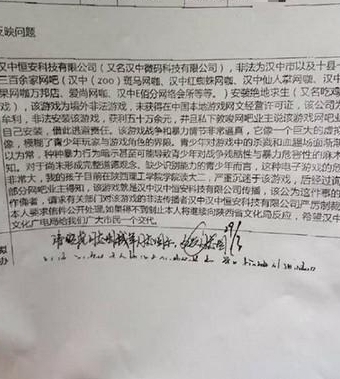 反映问题
汉中恒安科技有限公司（又名汉中微码科技有限公司），非法为汉中市以及十县一
三百余家网吧（汉中（zoo）斑马网咖、汉中红蜘蛛网咖、汉中仙人掌网咖、汉中
果网咖万邦店、爱尚网咖、汉中E佰分网络会所等等。）安装绝地求生（又名吃鸡
戏），该游戏为境外非法游戏，未获得在中国本地游戏网文经营许可证，该公司为
牟利，非法安装该游戏，获利五十万余元，并且私下教唆网吧业主说该游戏网吧业
自己安装，借此逃避责任。该游戏战争和暴力情节非常逼真，它像一个巨大的虚拟
像，模糊了青少年玩家与游戏角色的界限。青少年对游戏中的杀戮和血腥场面渐渐
以为常，种种暴力行为暗示甚至可能导致青少年对战争残酷性与暴力危害性的麻木
知。对于尚未形成完整道德观念、缺少识别能力的青少年而言，这种电子游戏的危
非常大，我的孩子目前在陕西理工学院学读大二，严重沉迷于该游戏，后经过询
部分网吧业主得知，该游戏就是汉中中恒安科技有限公司传播，该公为这件事的
作俑者，请求有关部门对该游戏的非法传播者汉中中恒安科技有限公司严厉制裁
本人要求信件公开处理，如果得不到制止本人将继续向陕西省文化局反应，希望汉中
文化广电局给我们广大市民一个交代。